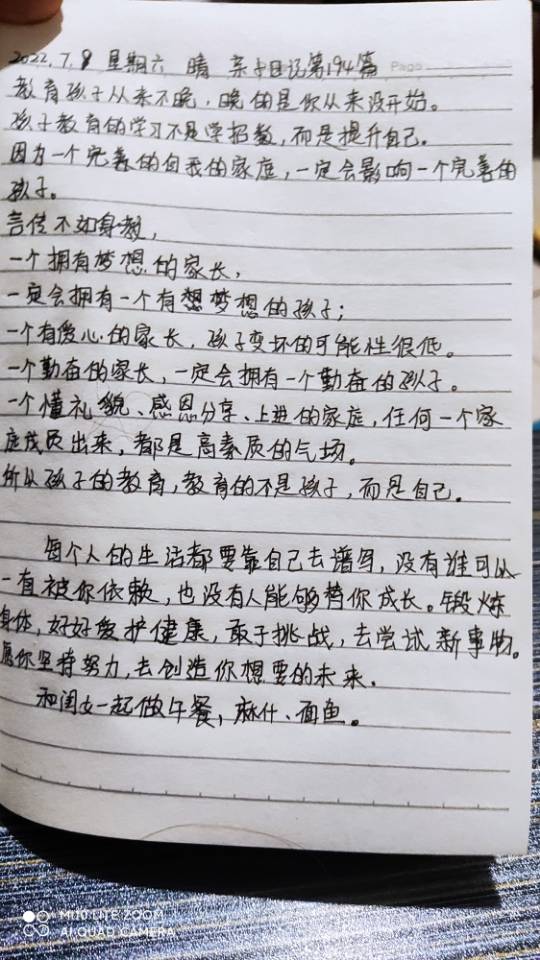 2022.7.9 星期六 晴 亲子日记第194篇 Page
教育孩子从来不晚,晚的是你从来没开始。
孩子教育的学习不是学招数,而是提升自己。
因为一个完善的自我的家庭,一定会影响一个完善的
孩子。
言传不如身教,
一个拥有梦想的家长,
一定会拥有一个有想梦想的孩子;
一个有爱心的家长,孩子变坏的可能性很低。
一个勤奋的家长,一定会拥有一个勤奋的孩子。
一个懂礼貌、感恩分享、上进的家庭,任何一个家
庭成员出来,都是高素质的气场。
所以孩子的教育,教育的不是孩子,而是自己。
每个人的生活都要靠自己去谱写,没有谁可以
一直被你依赖,也没有人能够替你成长。锻炼
身体,好好爱护健康,敢于挑战,去尝试新事物。
愿你坚持努力,去创造你想要的未来.
和闺女一起做午餐,麻什、面鱼。
MI 10 LITE ZOOM
AI QUAD CAMERA